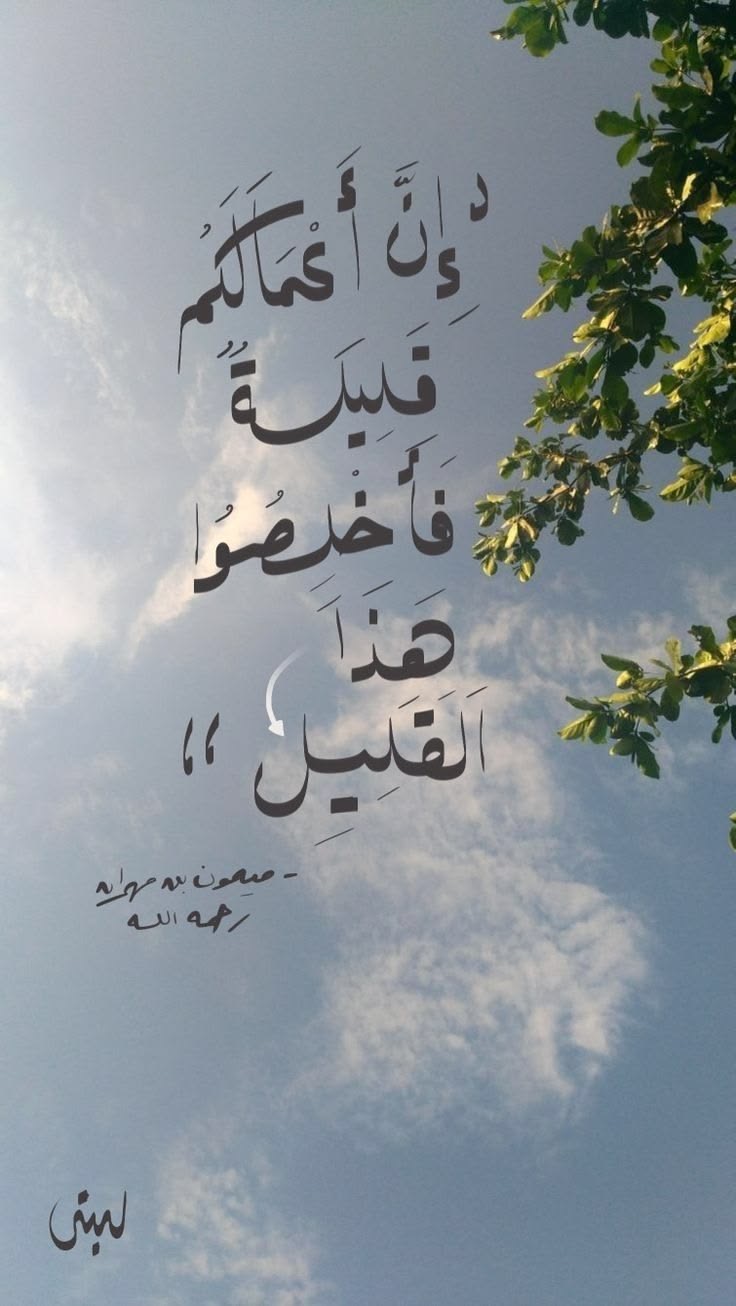 " إِنَّ أَعْمَالَكُمْ
قَلِيلَةٌ
فَأَخْلِصُوا
هَذَا
القَلِيلِ "
- ميمون بن مهران
رحمه الله